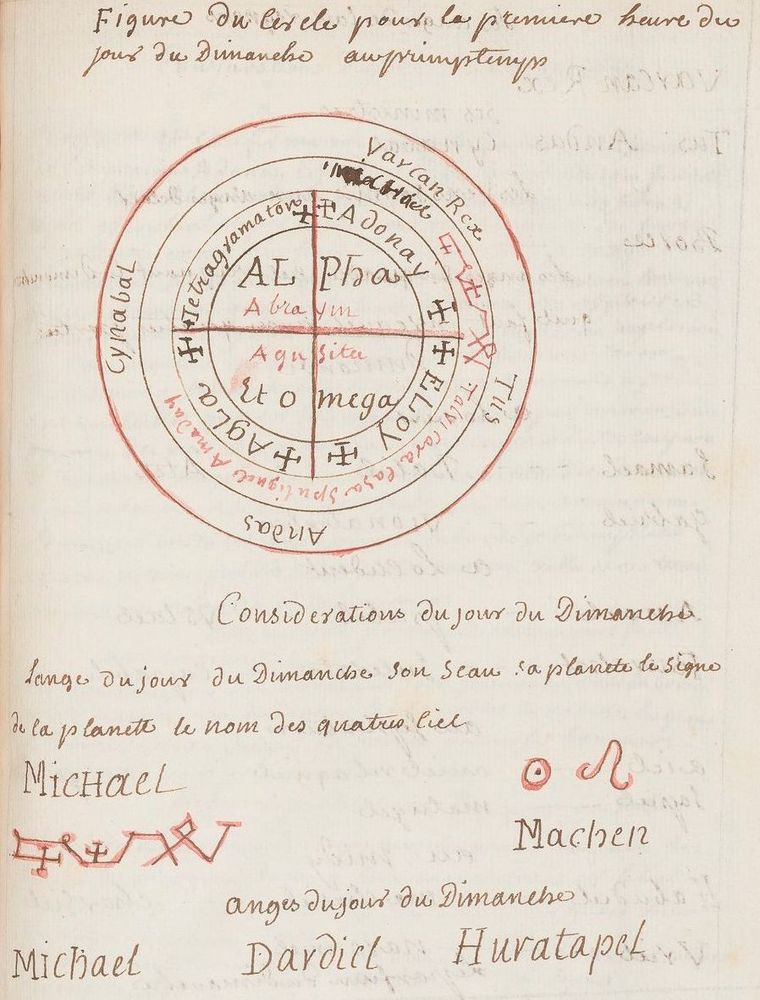 Figure du Cercle pour la premiere heure du
jour du Dimanche au primptemps
Varcan Rex
Michael
Tus
Andas
Cynabal
Tetragramatovn
Adonay
ELOY
AGLA
Talvi Cara Casa Spuligneb Amaday
ALPha
Abraym
Agusita
Et omega
Considerations du jour du Dimanche
Lange du jour du Dimanche son Seau sa planete le Signe
de la planett le nom des quatres. liel
MicHael
Machen
anges du jour du Dimanche
Michael Dardiel Huratapel